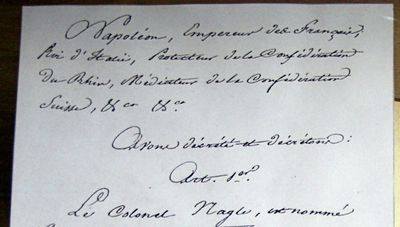 Napoléon, Empereur des Français,
Roi d'Italie, Protecteur de la Confédération
du Rhin, Médiateur de la Confédération
Suisse, &ca &ca
Avons décrété et décrétons:
Art. 1er.
Le Colonel Nagle, est nommé